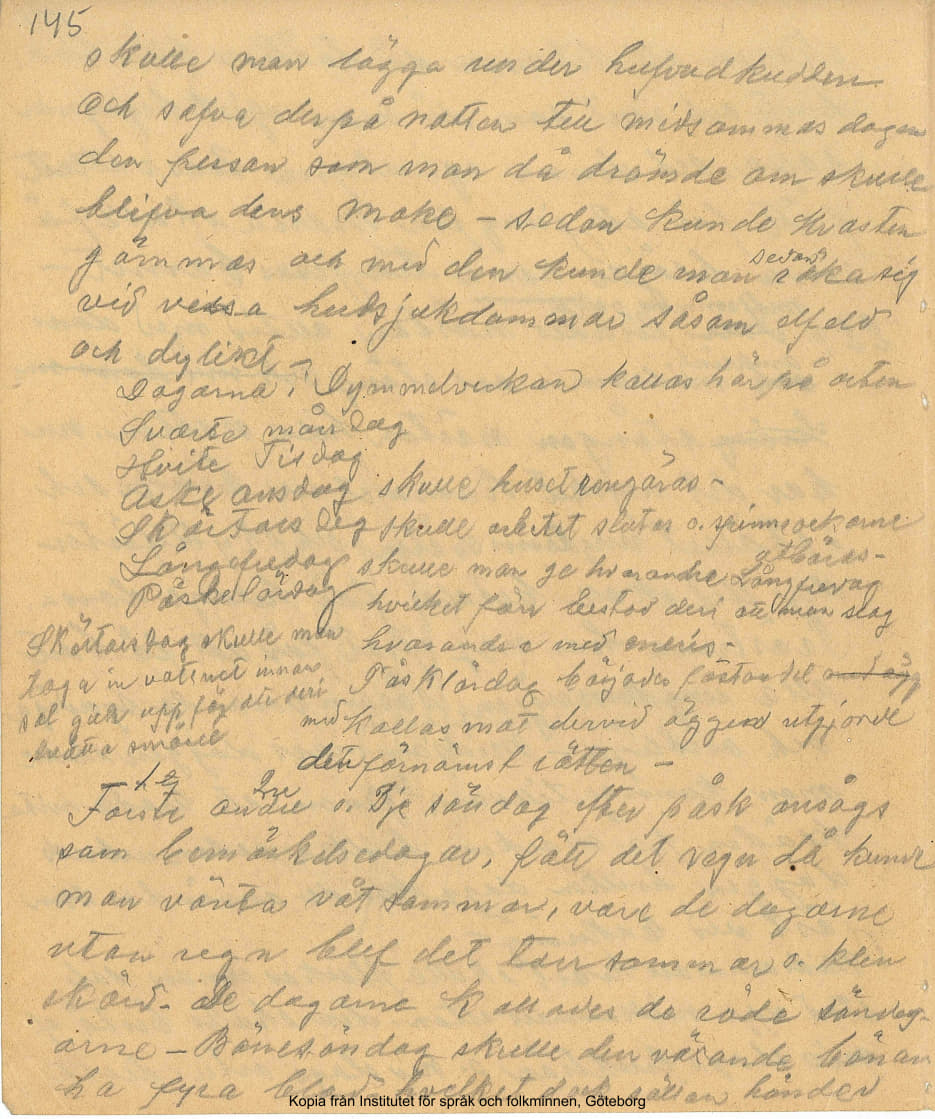 145
skulle man lägga under hufvudkudden
och sofva derpå natten till midsommas dagen
den person som man då drömde om skulle
blifva dens make – sedan kunde kvasten
gömmas och med den kunde man sedan röka sig
vid vissa hudsjukdommar såsom elfeld
och dylikt –
Dagarna i Dymmelveckan kallas här på orten
Svarte måndag
Hvite Tisdag
Aske onsdag skulle huset rengöras –
Skärtorsdag skulle arbetet slutas o. spinnrockarne
Långfredag skulle man ge hvarandra Långfredag
Påskelördag hvilket förr bestod deri att man slog
hvarandra med eneris –
Skärtorsdag skulle man
taga in vattnet innan
sol gick upp för att deri
tvätta smöret
Påsklördag börjades fästandet
med kallas mat dervid äggen utgjorde
den förnämst rätten –
Förste andre o. 3je söndag efter påsk ansågs
som bemärkelsedagar, föll det regn då kunde
man vänta våt sommar, vare de dagarne
utan regn blef det torr sommar o. klen
skörd – De dagarne kallades de röde söndag-
arne – Bönesöndag skulle den växande bönan
ha fyra blad hvilket dock sällan händer
Kopia från Institutet för språk och folkminnen, Göteborg